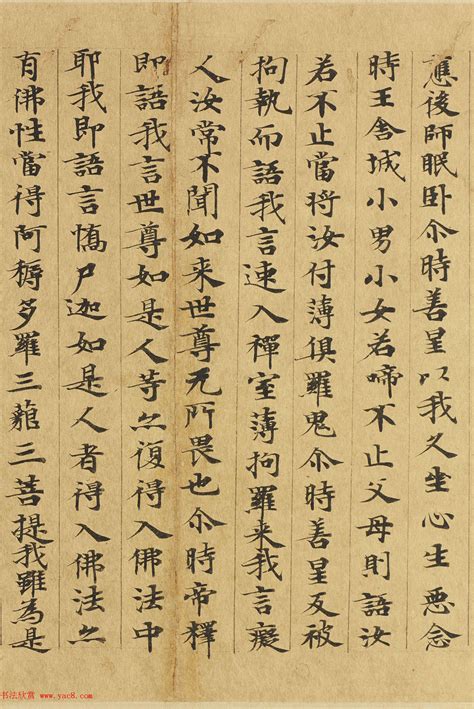 應後師眠卧尒時善星以我久坐心生悪念
時王舍城小男小女若啼不止父母則語汝
若不止當將汝付薄俱羅鬼尒時善星反被
拘執而語我言速入禪室薄拘羅来我言癡
人汝常不聞如来世尊无所畏也尒時帝釋
即語我言世尊如是人等亦復得入佛法中
耶我即語言憍尸迦如是人者得入佛法亦
有佛性當得阿耨多羅三藐三菩提我雖為是
书法欣赏 www.yac8.com